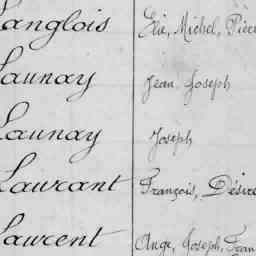 Langlois Elie, Michel, Pier
Launay Jean, Joseph
Launay Joseph
Laurant François, Désiré
Laurent Ange, Joseph, Fran